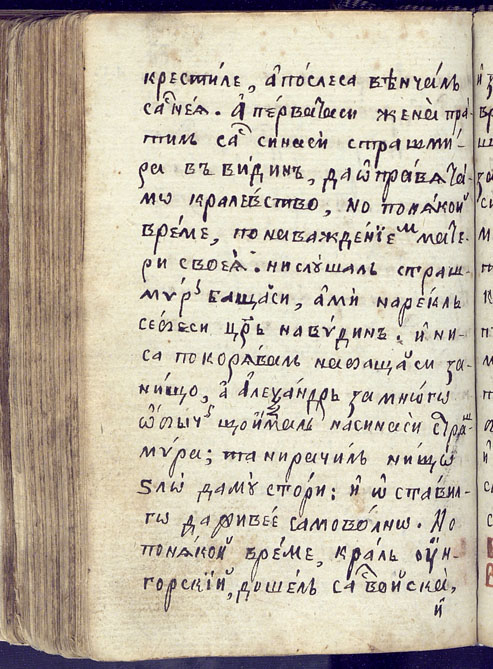 крестиле, а҆ по́слеса вѣнча́лъ
саⷭ҇ нея̀. А҆ пе́рватаси жена̀ пра-
тилъ саⷭ҇ си́наси страшми-
ра въ ви́динъ, да ѡ҆правѧ та-
мо кралевство, но поня́кой
вре́ме, по наважде́нїеⷨ мате-
ри своеѧ̀. нислу́шалъ страш-
му́ръ баща̀си, а҆ми наре́клъ
се́беси цр҃ь на бу́динъ. и҆ ни-
са покоря́валъ на баща̀си за-
ни́що, а҆ а҆леѯа́ндръ за мно́гѡ
ѡ҆би́чь що и҆́малъ на си́наси страⷲ-
му́ра; та нирачи́лъ ни́щѡ
ѕло̀ да му̀ сто́ри: и҆ ѡ҆ста́вил-
гѡ да живе́е самово́лнѡ. Но
поня́кой вре́ме, кра́ль оу҆н-
горскїй, доше́лъ саⷭ҇ во́йска,
и҆